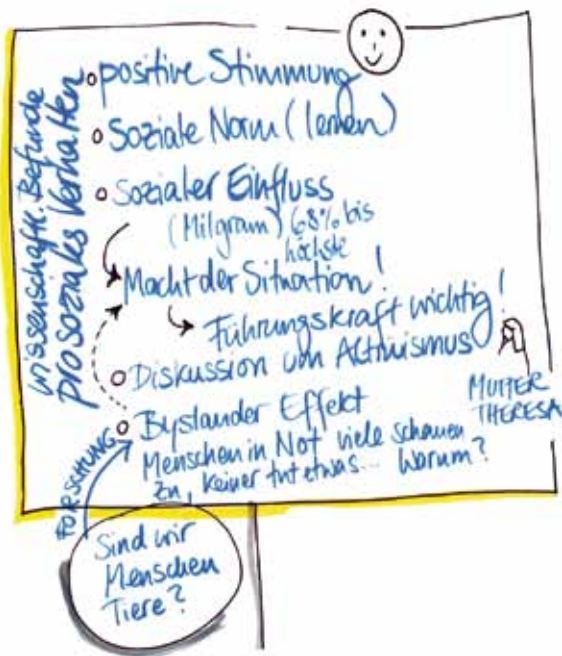 wissenschaftl. Befunde
prosoziales Verhalten
positive Stimmung
Soziale Norm (lernen)
Sozialer Einfluss
(Milgram) 68% bis
höchste
Macht der Situation!
Führungskraft wichtig!
Diskussion um Altruismus
MUTTER
THERESA
Bystander Effekt
Menschen in Not viele schauen
zu, keiner tut etwas... Warum?
FORSCHUNG
Sind wir
Menschen
Tiere?